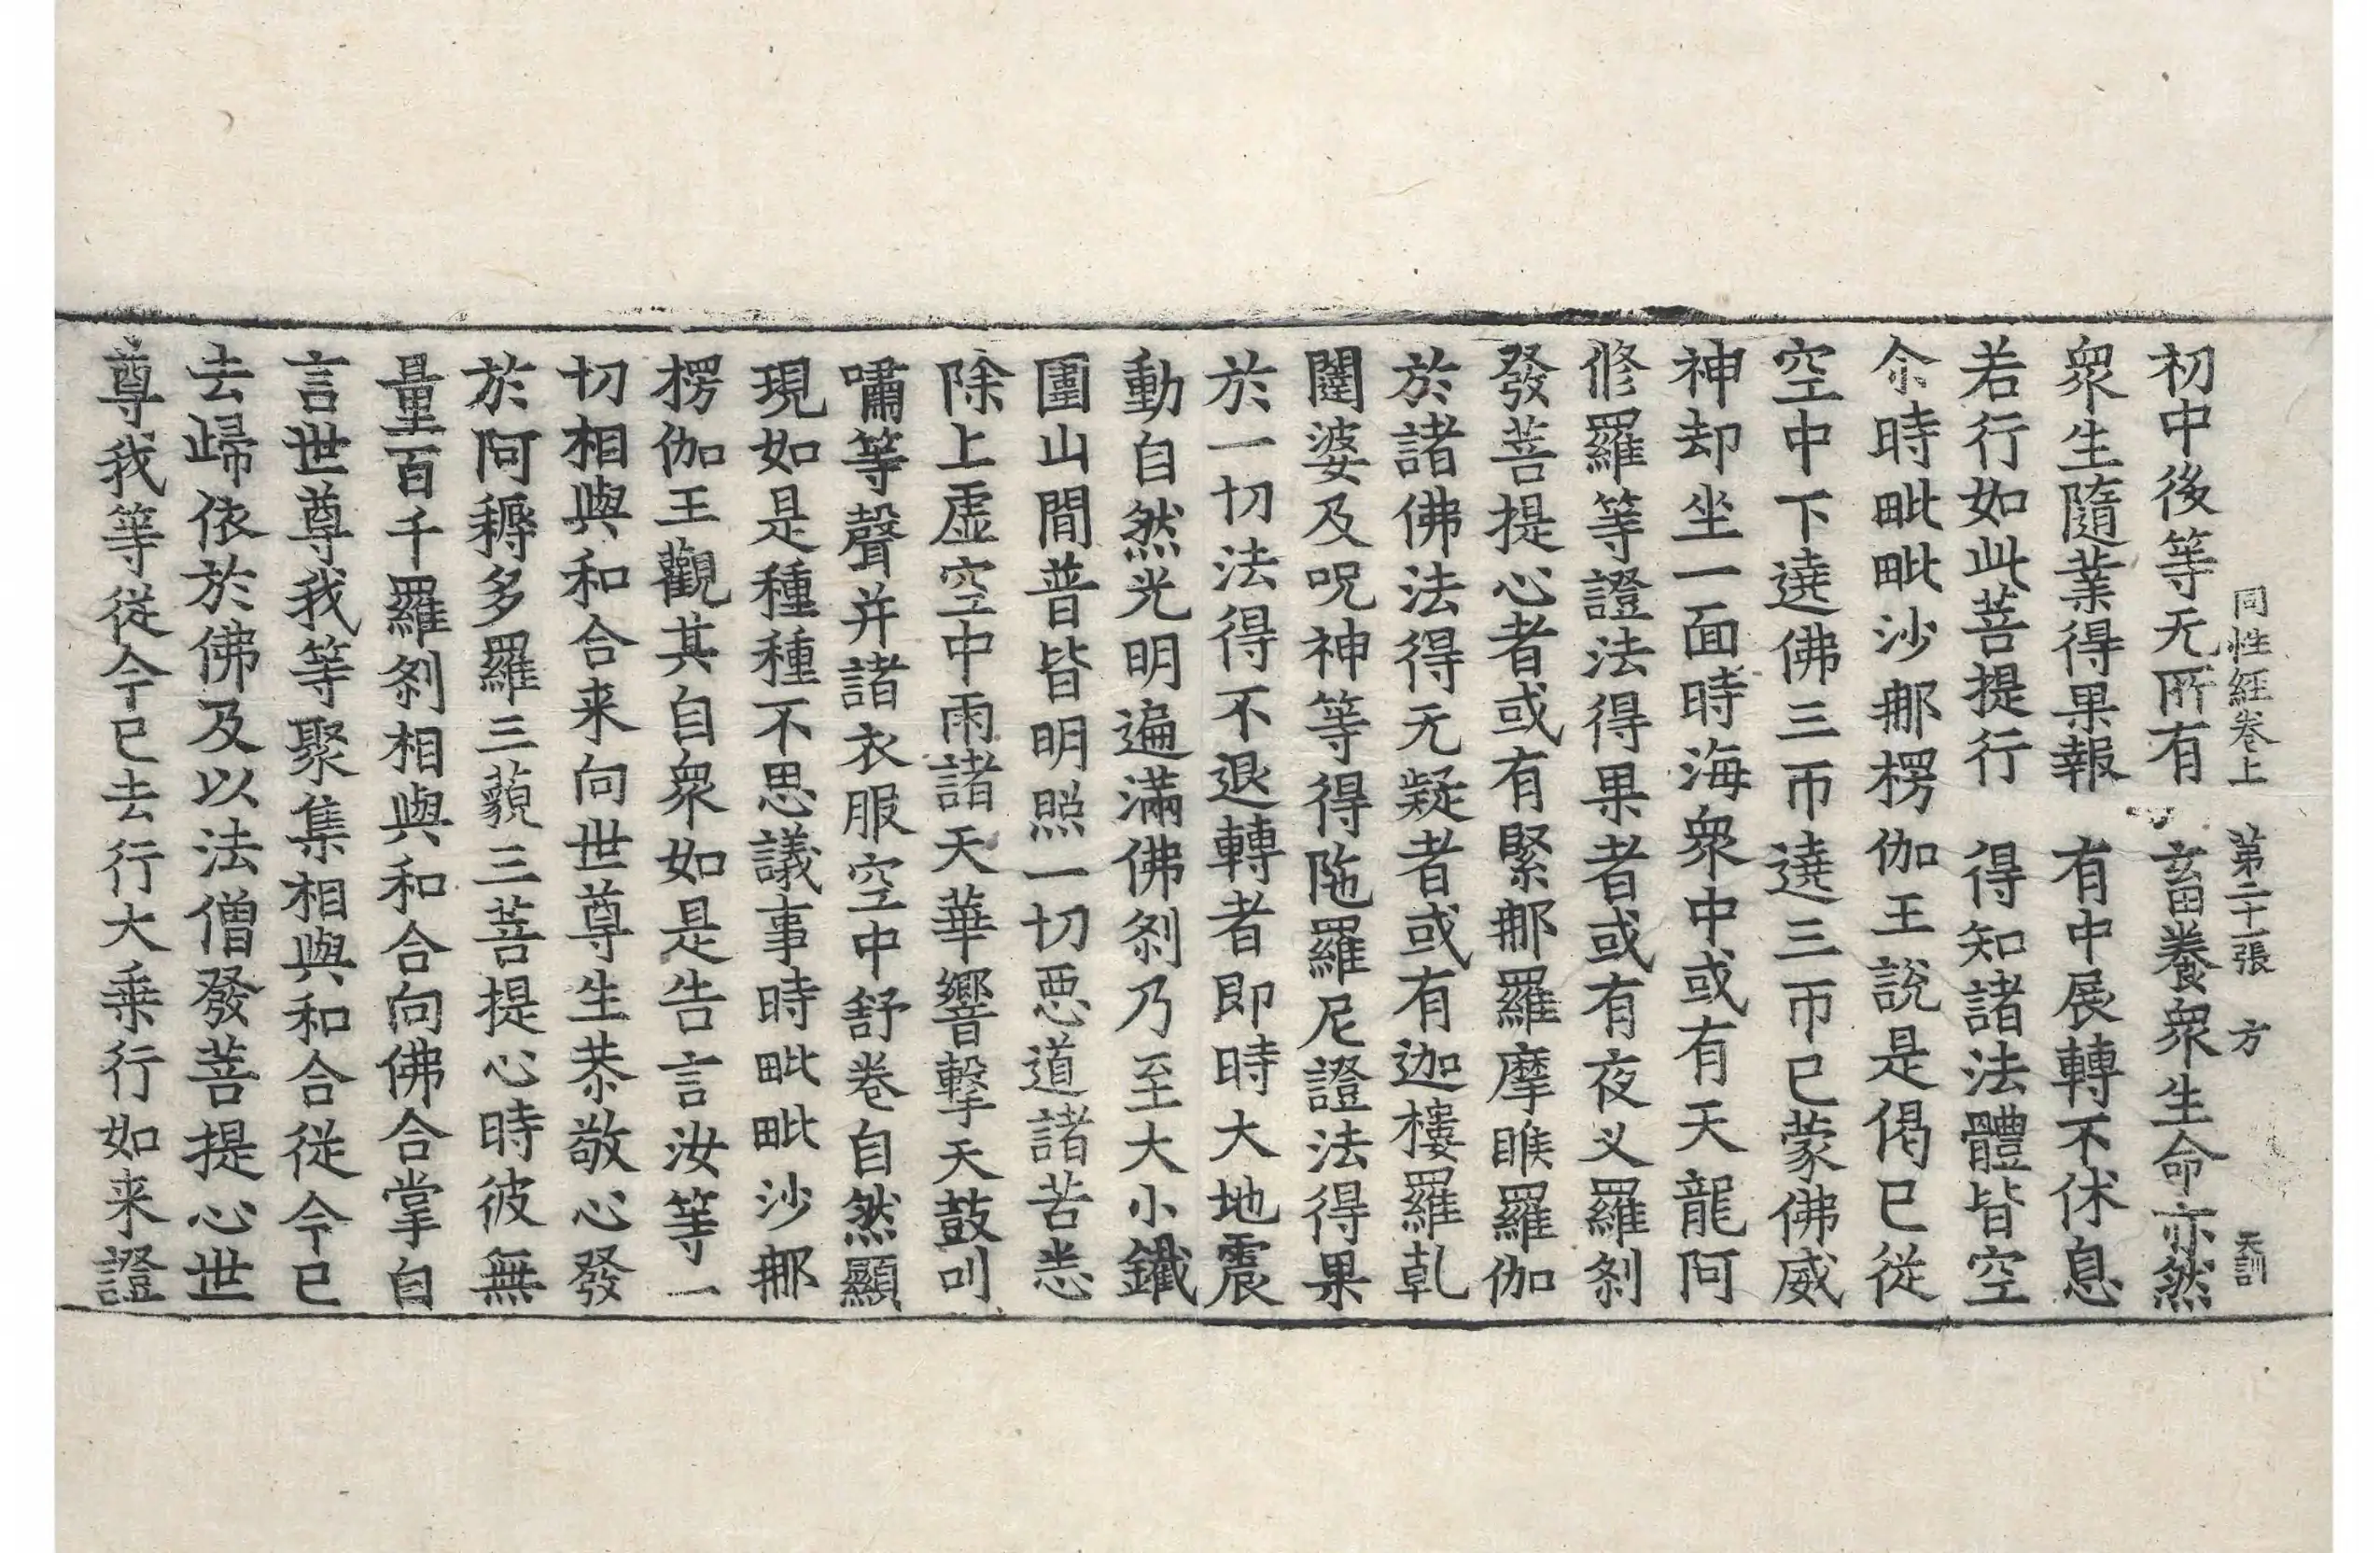 同性経卷上　第二十一張　方　天訓
初中後等无所有　畜養衆生命亦然
衆生隨業得果報　有中展轉不休息
若行如此菩提行　得知諸法體皆空
尒時毗毗沙郍楞伽王說是偈已從
空中下遶佛三帀遶三帀已蒙佛威
神却坐一面時海衆中或有天龍阿
修羅等證法得果者或有夜叉羅剎
發菩提心者或有緊郍羅摩睺羅伽
於諸佛法得无疑者或有迦樓羅乹
闥婆及呪神等得陁羅尼證法得果
於一切法得不退轉者即時大地震
動自然光明遍滿佛剎乃至大小鐵
圍山間普皆明照一切惡道諸苦悉
除上虛空中雨諸天華響擊天鼓叫
嘯等聲并諸衣服空中舒卷自然顯
現如是種種不思議事時毗毗沙郍
楞伽王觀其自衆如是告言汝等一
切相與和合来向世尊生恭敬心發
於阿耨多羅三藐三菩提心時彼無
量百千羅剎相與和合向佛合掌自
言世尊我等聚集相與和合從今已
去歸依於佛及以法僧發菩提心世
尊我等從今已去行大乗行如来證